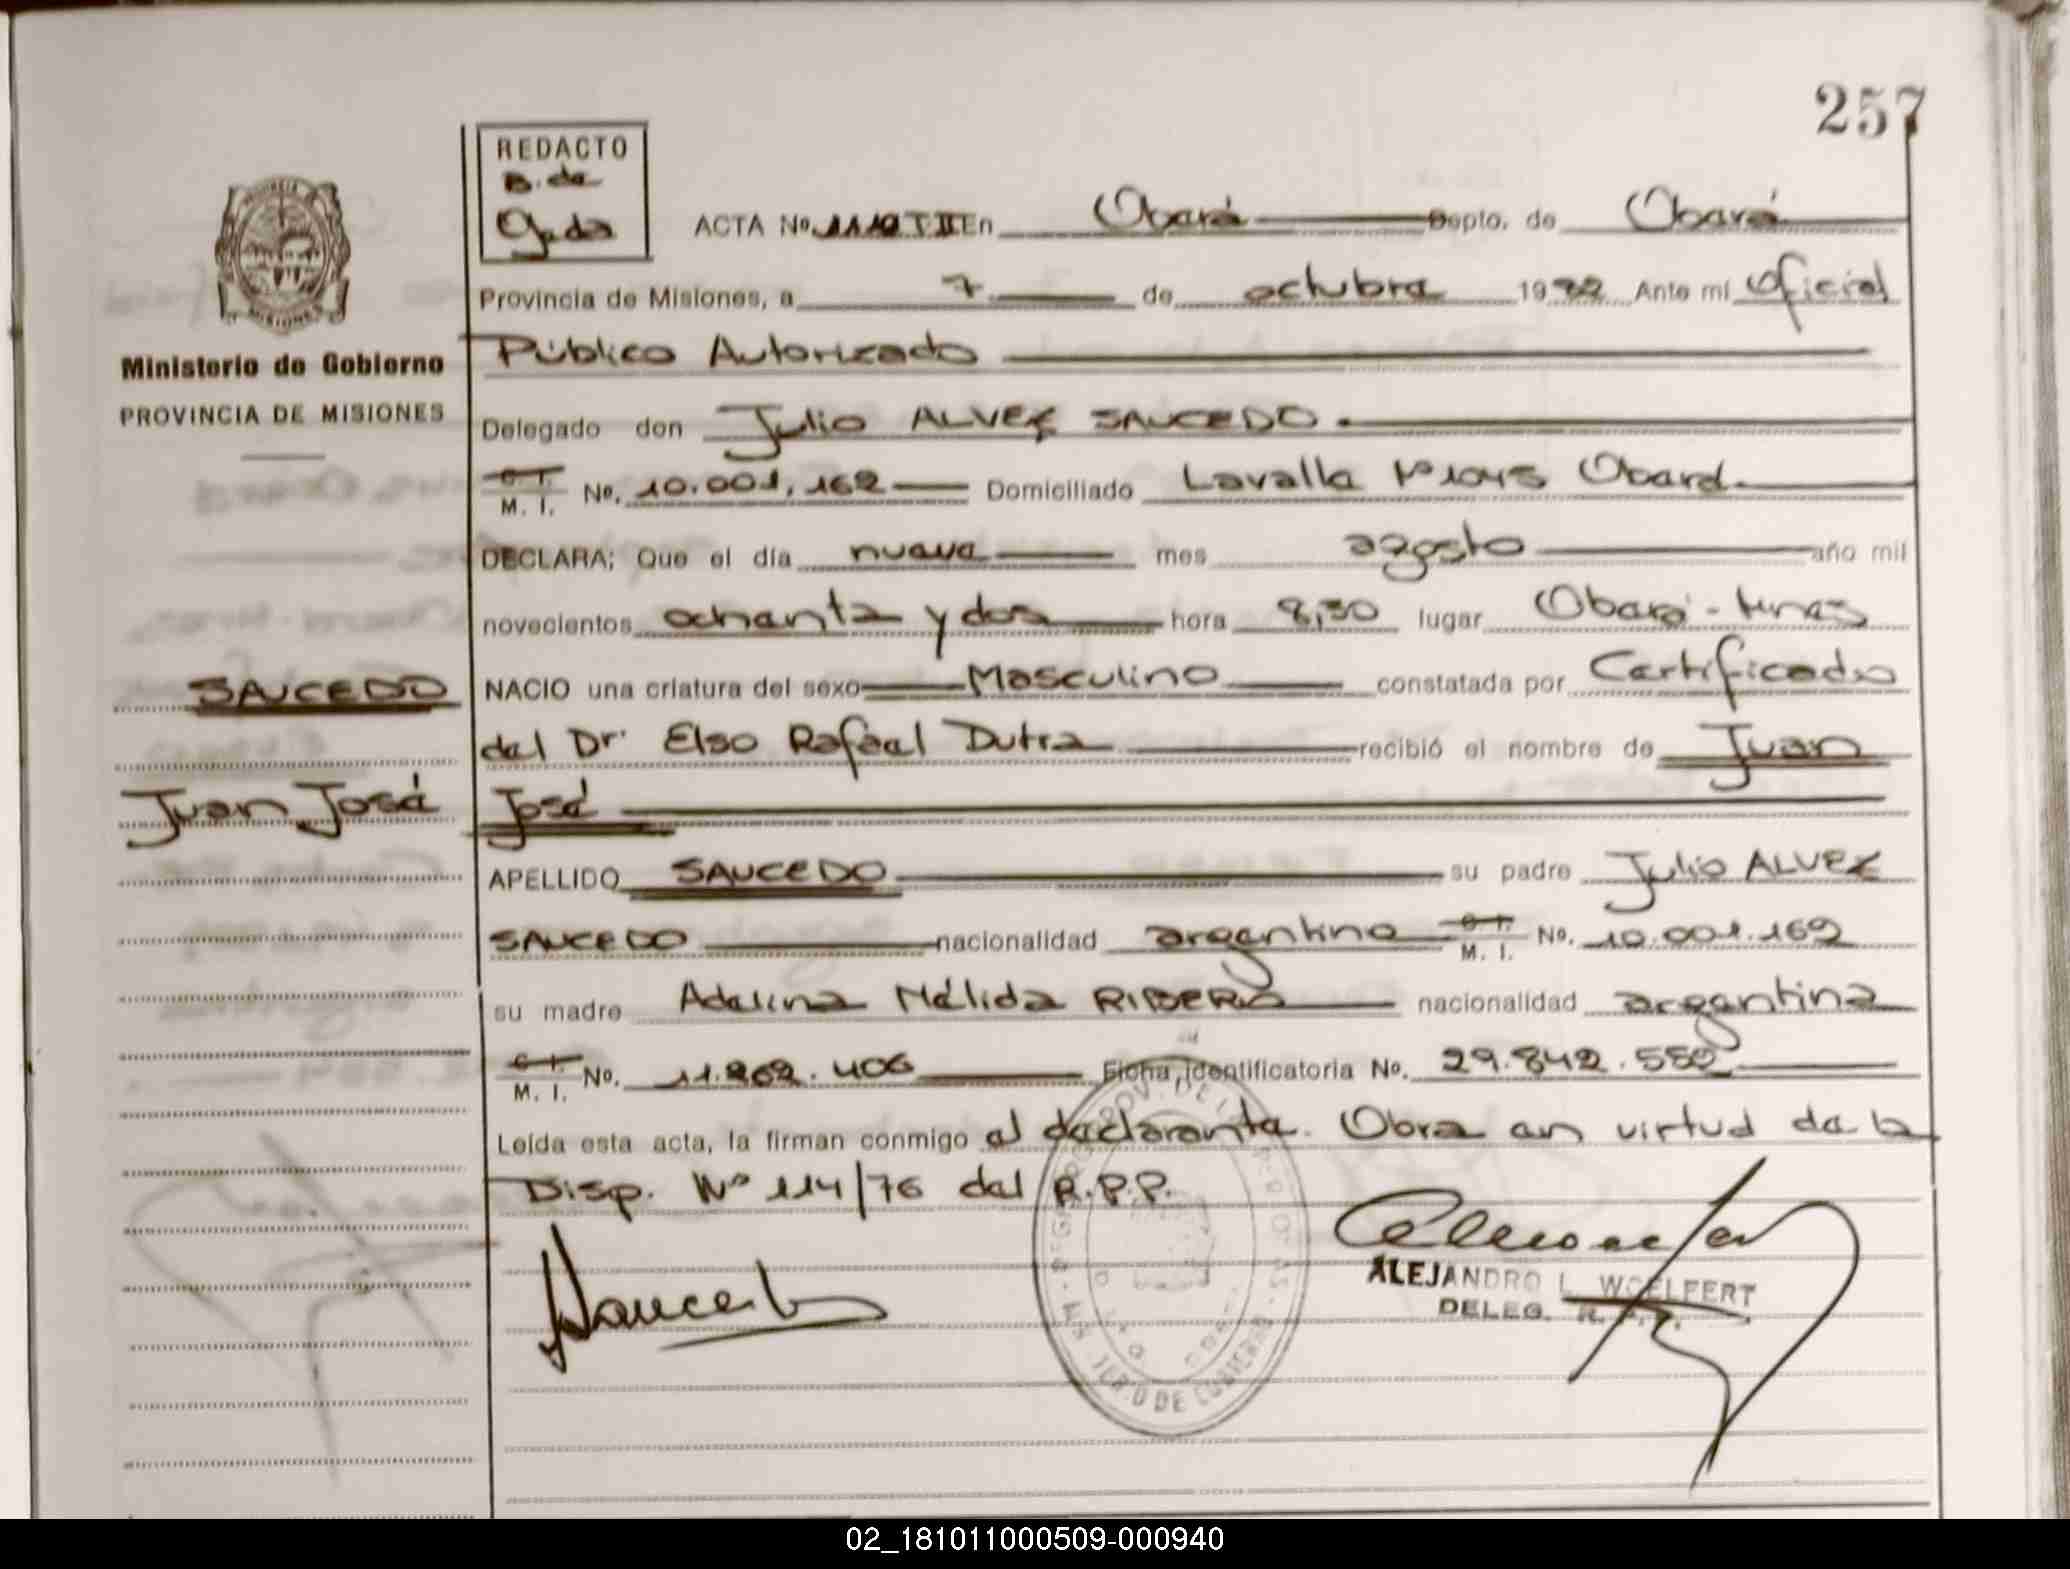 257
REDACTO
B. de
Gyda
ACTA Nº 1110 T II En Oberá Depto. de Oberá
Provincia de Misiones, a 7 de octubre 1982 Ante mí Oficial
Público Autorizado
Ministerio de Gobierno
PROVINCIA DE MISIONES
Delegado don Julio ALVEZ SAUCEDO.
C. I.
M. I. Nº. 10.001.162 Domiciliado Lavalle Nº 1045 Oberá.
DECLARA; Que el día nueve mes agosto año mil
novecientos ochenta y dos hora 8,30 lugar Oberá - Mnes
NACIO una criatura del sexo Masculino constatada por Certificado
SAUCEDO
del Dr. Elso Rafael Dutra recibió el nombre de Juan
Juan José
José
APELLIDO SAUCEDO su padre Julio ALVEZ
SAUCEDO nacionalidad argentino C. I. M. I. Nº. 10.001.162
su madre Adelina Nélida RIBERO nacionalidad argentina
C. I.
M. I. Nº. 11.262.406 Ficha identificatoria No. 29.842.552
Leída esta acta, la firman conmigo el declarante. Obra en virtud de la
Disp. Nº 114/76 del R.P.P.
ALEJANDRO L. WOELFERT
DELEG. R. P. P.
02_181011000509-000940